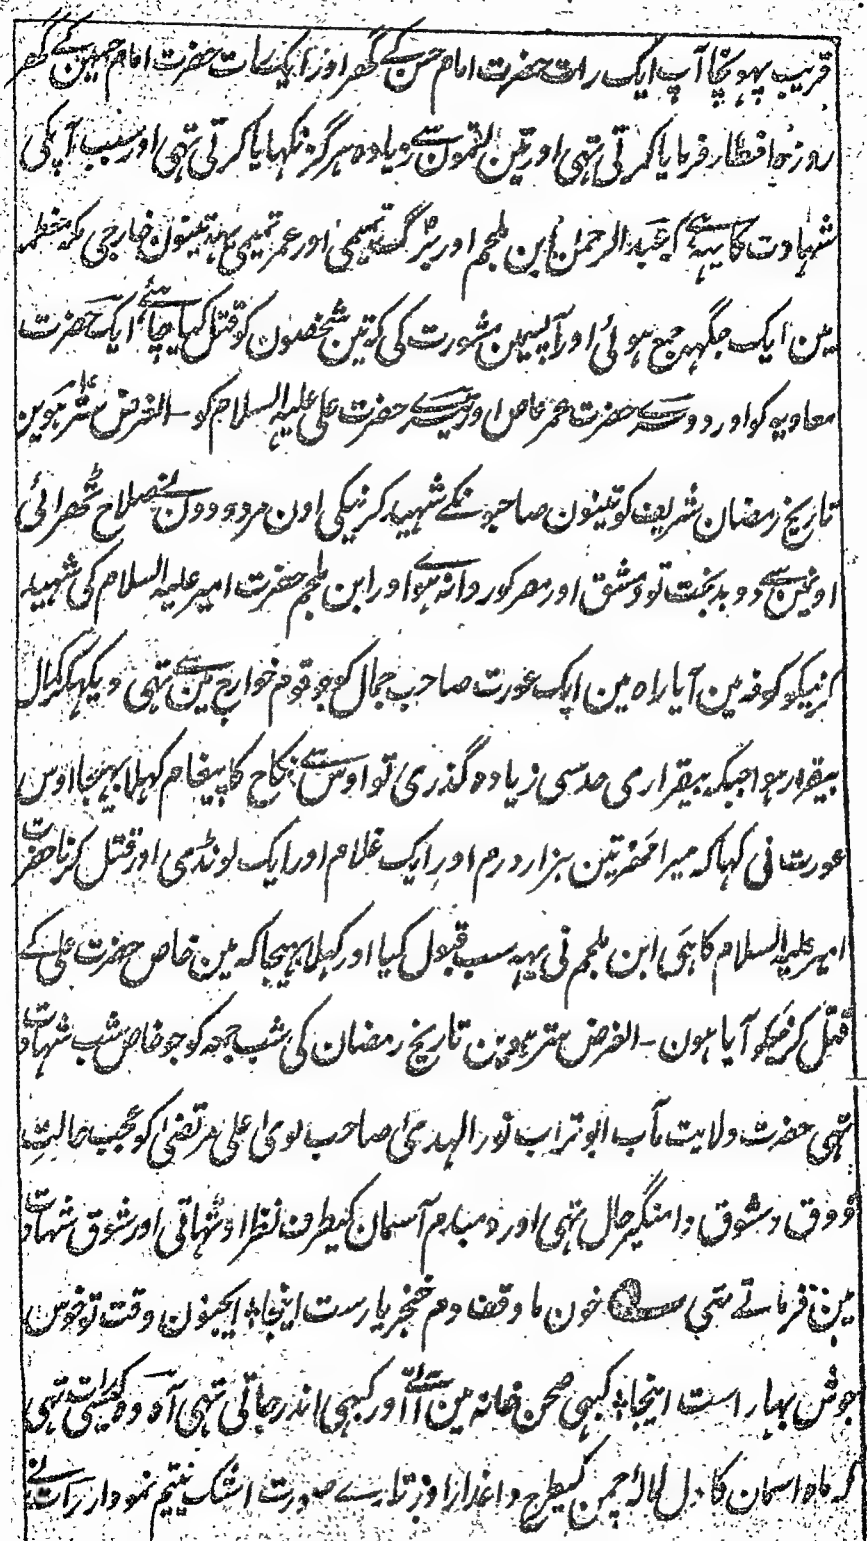 قریب پہونچا آپ ایک رات حضرت امام حسن کے گھر اور ایک رات حضرت امام حسین کے گھر
روزہ افطار فرمایا کرتی تہی اور تین لقمون سے زیادہ ہرگز نکہایا کرتی تہی اور سبب آپکی
شہادت کا یہہ ہے کہ عبد الرحمن ابن ملجم اور برگ تمیمی اور عمر تمیمی یہہ تینون خارجی مکہ معظمہ
مین ایک جگہہ جمع ہوئی اور آپسمین مشورت کی کہ تین شخصون کو قتل کیا چاہئے ایک حضرت
معاویہ کو اور دوسرے حضرت عمر عاص اور تیسرے حضرت علی علیہ السلام کو ۔ الغرض سترہوین
تاریخ رمضان شریف کو تینون صاحبونکے شہید کرنیکی اون مردودون نے صلاح ٹھرائی
اونمین سے دو بدبخت تو دمشق اور مصر کو روانہ ہوے اور ابن ملجم حضرت امیر علیہ السلام کی شہید
کرنیکو کوفہ مین آیا راہ مین ایک عورت صاحب جمال کو جو قوم خوارج مین سے تہی دیکہکر کمال
بیقرار ہوا جبکہ بیقراری حدسی زیادہ گذری تو اوس سے نکاح کا پیغام کہلا بہیجا اوس
عورت نی کہا کہ میرا مہر تین ہزار درم اور ایک غلام اور ایک لونڈی اور قتل کرنا حضرت
امیر علیہ السلام کا ہی ابن ملجم نی یہہ سب قبول کیا اور کہلا بہیجا کہ مین خاص حضرت علی کے
قتل کرنیکو آیا ہون ۔ الغرض سترہوین تاریخ رمضان کی شب جمعہ کو جو خاص شب شہادت
تہی حضرت ولایت مآب ابو تراب نور الہدی صاحب لوی علی مرتضی کو عجب حالت
ذوق و شوق دامنگیر حال تہی اور دمبدم آسمان کیطرف نظر اوٹہاتی اور شوق شہادت
مین فرماتے تہی خون ما وقف دم خنجر یار ست اینجا
جوش بہار است اینجا کبہی صحن خانہ مین آتے اور کبہی اندر جاتی تہی آہ وہ کیسی رات تہی
کہ ماہ اسمان کا دل لالہ چمن کیطرح داغدار اور تارے صورت اشک یتیم نمودار رات نے